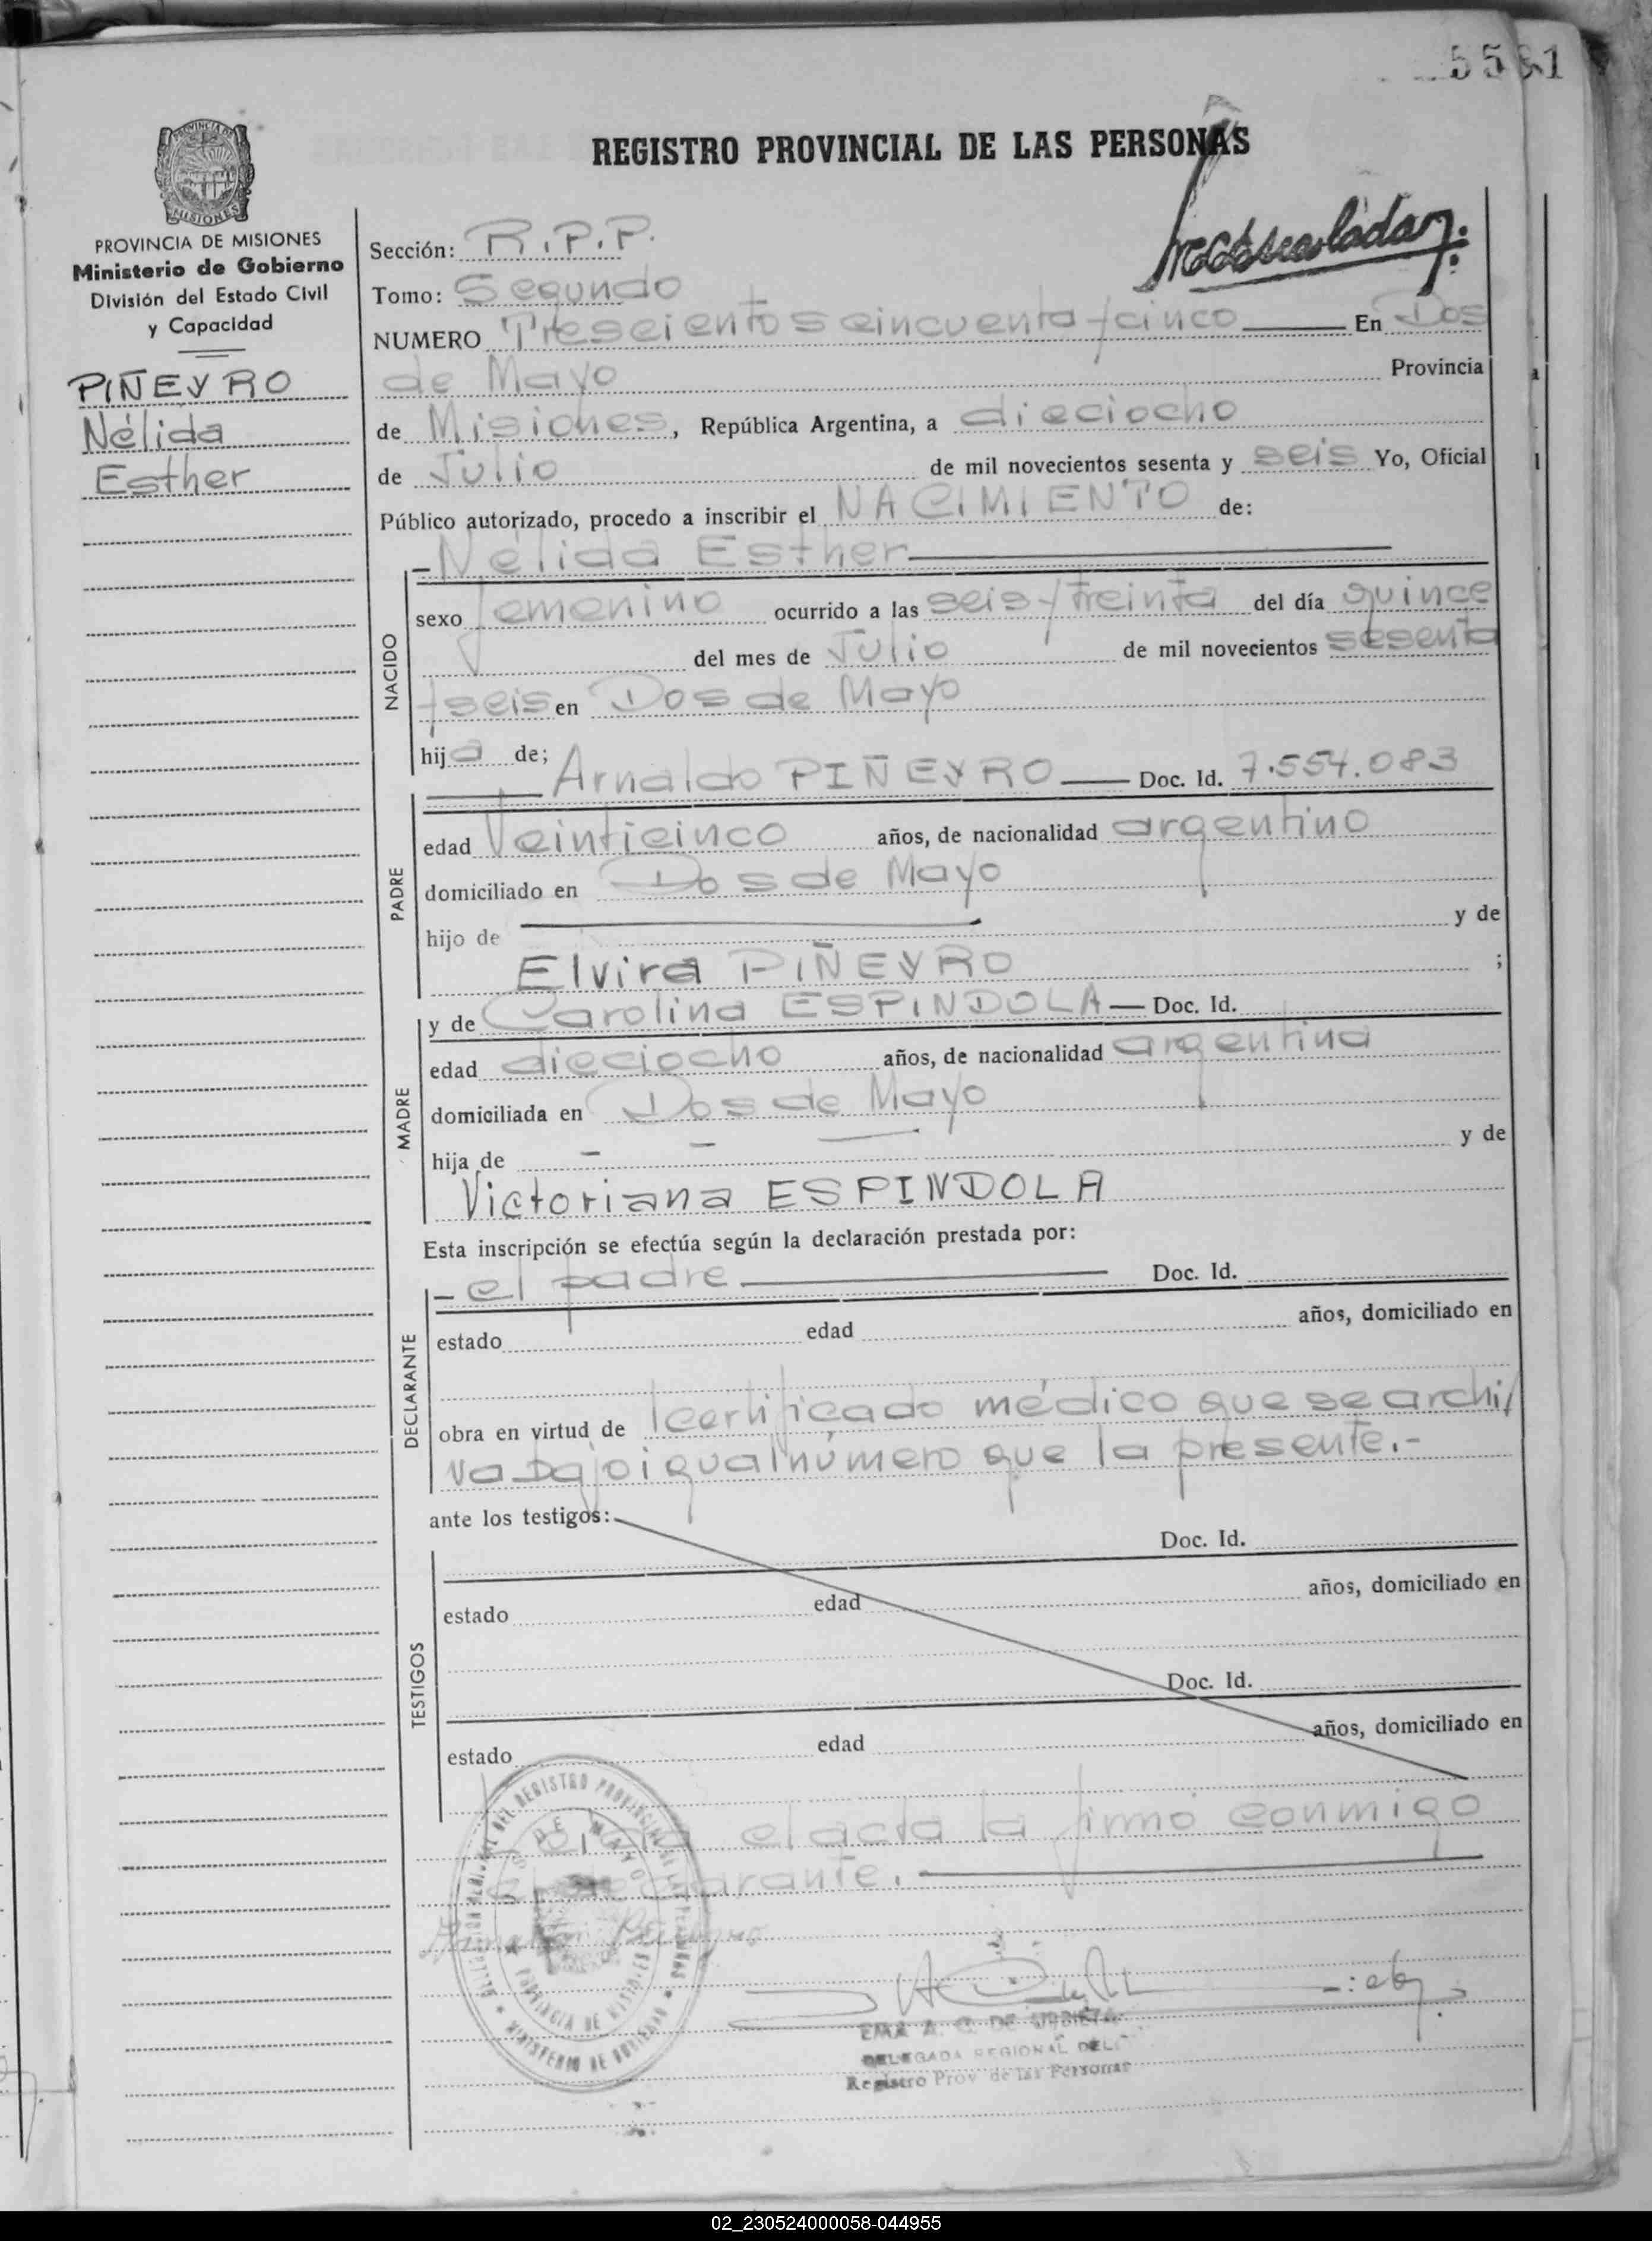 5581
REGISTRO PROVINCIAL DE LAS PERSONAS
PROVINCIA DE MISIONES
Ministerio de Gobierno
División del Estado Civil
y Capacidad
PIÑEYRO
Nélida
Esther
Sección: R.P.P.
Tomo: Segundo
NUMERO Trescientos cincuenta y cinco En Dos
de Mayo Provincia
de Misiones, República Argentina, a dieciocho
de Julio de mil novecientos sesenta y seis Yo, Oficial
Público autorizado, procedo a inscribir el NACIMIENTO de:
- Nélida Esther
NACIDO
sexo femenino ocurrido a las seis y treinta del día quince
del mes de Julio de mil novecientos sesenta
y seis en Dos de Mayo
hija de; Arnaldo PIÑEYRO Doc. Id. 7.554.083
PADRE
edad Veinticinco años, de nacionalidad argentino
domiciliado en Dos de Mayo
hijo de y de
Elvira PIÑEYRO ;
y de Carolina ESPINDOLA — Doc. Id.
MADRE
edad dieciocho años, de nacionalidad argentina
domiciliada en Dos de Mayo
hija de - - — y de
Victoriana ESPINDOLA
Esta inscripción se efectúa según la declaración prestada por:
- el padre Doc. Id.
DECLARANTE
estado edad años, domiciliado en
obra en virtud de certificado médico que se archi/
va bajo igual número que la presente.-
ante los testigos:
Doc. Id.
TESTIGOS
estado edad años, domiciliado en
Doc. Id.
estado edad años, domiciliado en
el acta la firmó conmigo
el declarante.
EMA A. C. DE URBIETA
DELEGADA REGIONAL DEL
Registro Prov. de las Personas
02_230524000058-044955